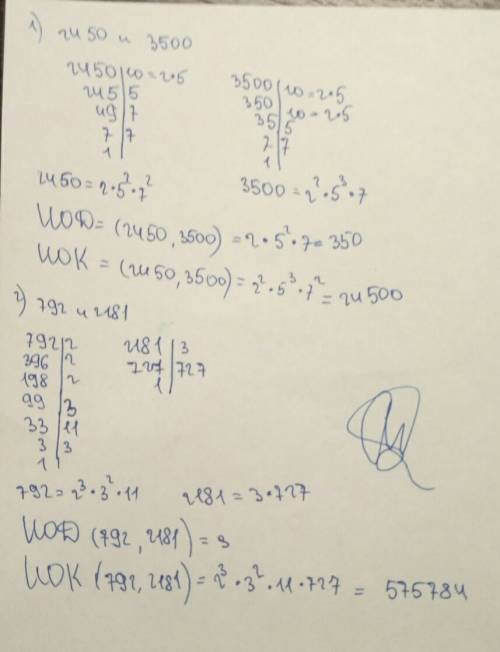 1) 2450 и 3500
2450|10=2·5
245|5
49|7
7|7
1|
3500|10=2·5
350|10=2·5
35|5
7|7
1|
2450=2·5²·7²
3500=2²·5³·7
НОД=(2450,3500)=2·5²·7=350
НОК=(2450,3500)=2²·5³·7²=24500
2) 792 и 2181
792|2
396|2
198|2
99|3
33|11
3|3
1|
2181|3
727|727
1|
792=2³·3²·11
2181=3·727
НОД(792,2181)=3
НОК(792,2181)=2³·3²·11·727=575784